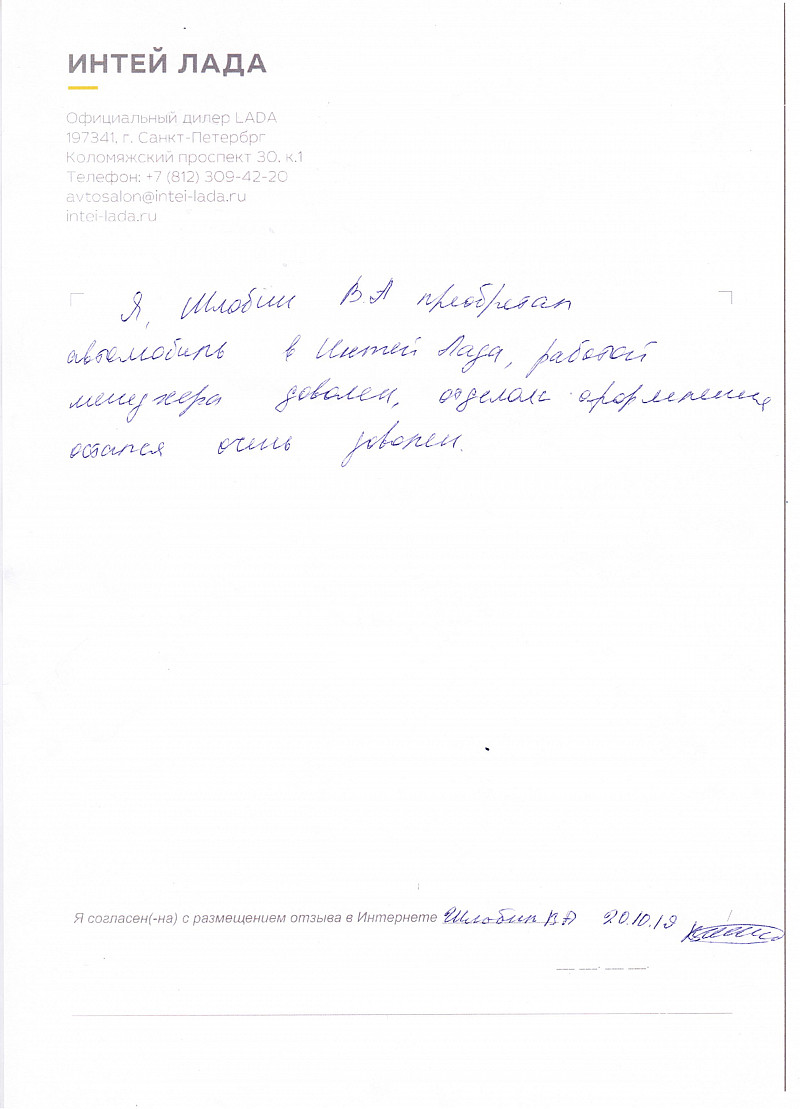 ИНТЕЙ ЛАДА
Официальный дилер LADA
197341, г. Санкт-Петербрг
Коломяжский проспект 30, к.1
Телефон: +7 (812) 309-42-20
avtosalon@intei-lada.ru
intei-lada.ru
Я, Шлобин В.А преобретал
автомобиль в Интей Лада, работой
менеджера доволен, отделом оформления
остался очень доволен.
Я согласен(-на) с размещением отзыва в Интернете Шлобин ВА 20.10.19